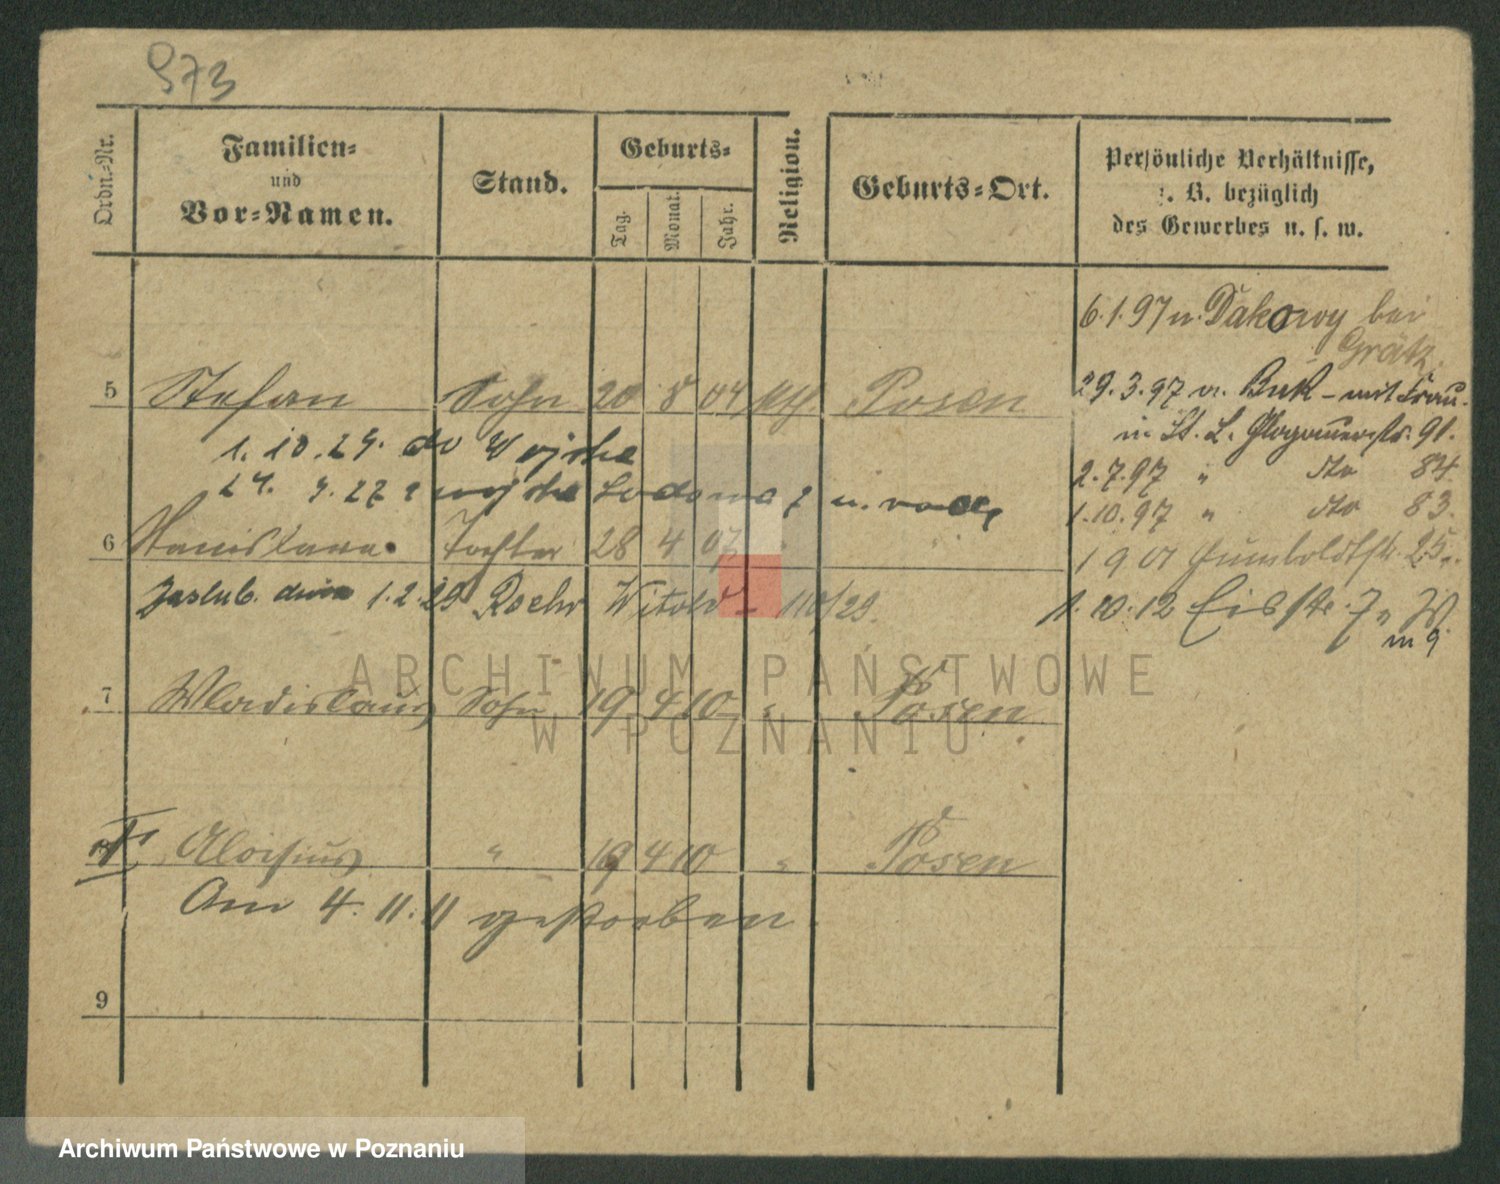 973
Ordn.-Nr.
Familien-
und
Vor-Namen.
Stand.
Geburts-
Tag.
Monat.
Jahr.
Religion.
Geburts-Ort.
Persönliche Verhältnisse,
z. B. bezüglich
des Gewerbes u. s. w.
6.1.97 n. Dakowy bei
Grätz.
5 Stefan Sohn 20 8 04 kth Posen
29.3.97 v. Buk – mit Frau
in St. L. Glogauerstr. 91.
1.10.24. do Wojska
2.7.97 " dto 84
24. 9. 27 z wojska
1.10.97 " dto 83.
6 Stanislawa Tochter 28 4 07 "
1901 Humboldtstr. 25.
Zaslub. dnia 1.2.29 Roehr Witold 110/29.
1.10.12 Eisstr. 7 W
m 9
7 Wladislaus Sohn 19 4 10 " Posen
Aloisius " 19 4 10 " Posen
Am 4. 11. 11 gestorben.
9
ARCHIWUM PAŃSTWOWE
W POZNANIU
Archiwum Państwowe w Poznaniu